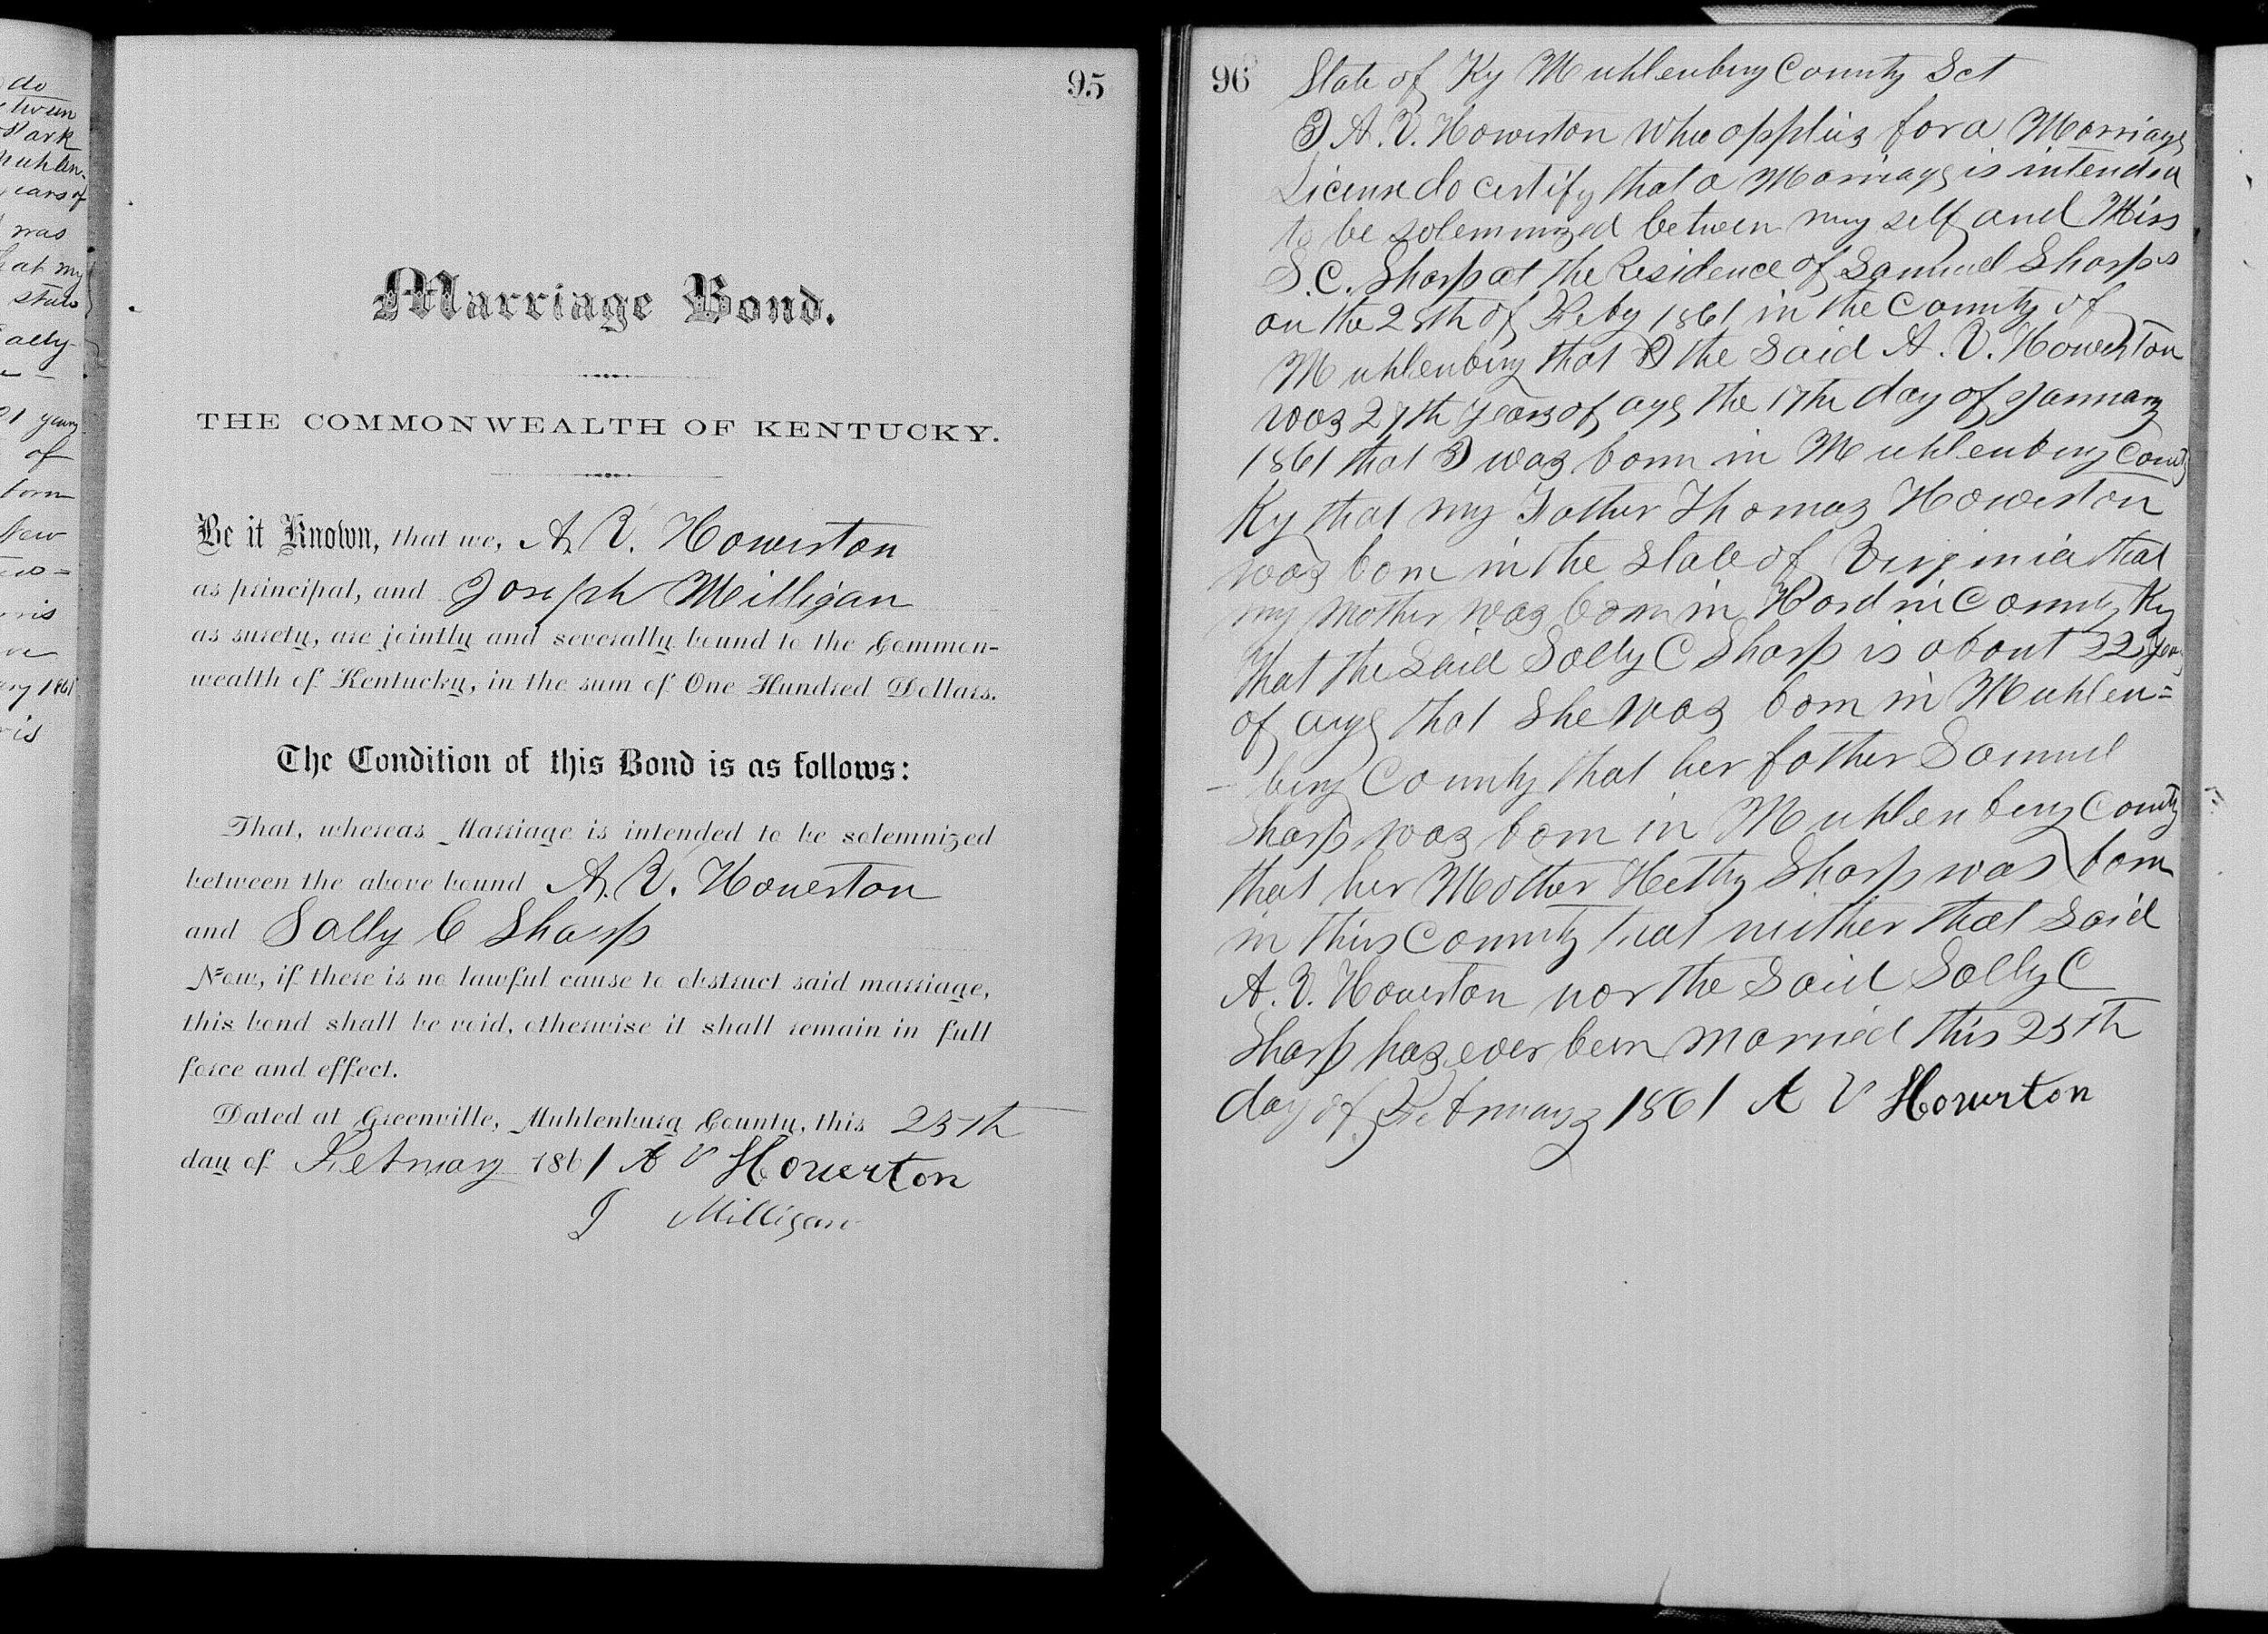 do
Park
Muhlen-
years of
was
at my
ally
21 years
of
born
New
is
95
Marriage Bond.
THE COMMONWEALTH OF KENTUCKY.
Be it Known, that we, A. V. Howerton
as principal, and Joseph Milligan
as surety, are jointly and severally bound to the Common-
wealth of Kentucky, in the sum of One Hundred Dollars.
The Condition of this Bond is as follows:
That, whereas Marriage is intended to be solemnized
between the above bound A. V. Howerton
and Sally C Sharp
Now, if there is no lawful cause to obstruct said marriage,
this bond shall be void, otherwise it shall remain in full
force and effect.
Dated at Greenville, Muhlenburg County, this 25th
day of February 1861 A V Howerton
J Milligan
96 State of Ky Muhlenburg County Sct
I A. V. Howerton who applies for a Marriage
License do certify that a Marriage is intended
to be solemnized between my self and Miss
S. C. Sharp at the Residence of Samuel Sharps
on the 28th of Feby 1861 in the County of
Muhlenburg that I the Said A. V. Howerton
was 27th years of age the 17th day of January
1861 that I was born in Muhlenburg County
Ky that my Father Thomas Howerton
was born in the State of Virginia that
my mother was born in Hardin County Ky
that the Said Sally C Sharp is about 22 years
of age that She was born in Muhlen=
-burg County that her father Samuel
Sharp was born in Muhlenburg County
that her Mother Hetty Sharp was born
in this County that neither that Said
A. V. Howerton nor the Said Sally C
Sharp has ever been married this 25th
day of February 1861 A V Howerton